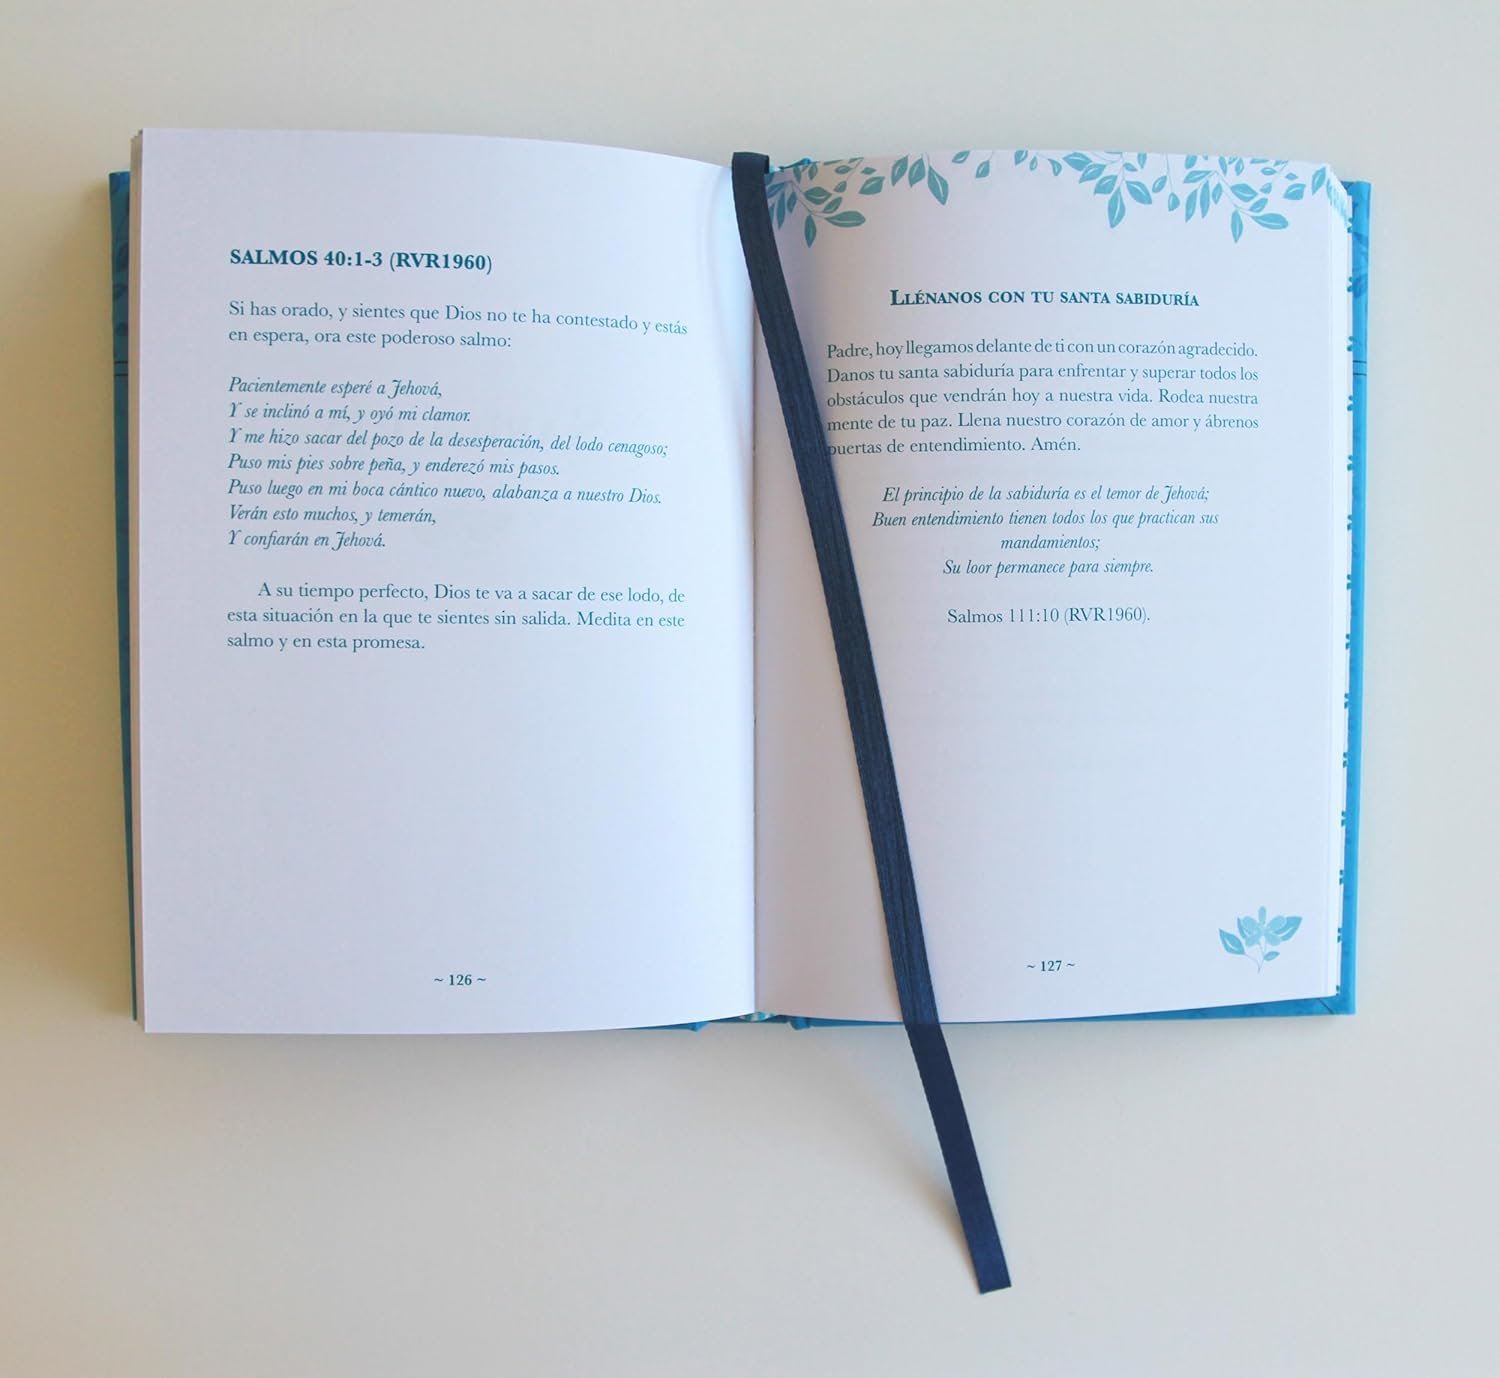 SALMOS 40:1-3 (RVR1960)
Si has orado, y sientes que Dios no te ha contestado y estás
en espera, ora este poderoso salmo:
Pacientemente esperé a Jehová,
Y se inclinó a mí, y oyó mi clamor.
Y me hizo sacar del pozo de la desesperación, del lodo cenagoso;
Puso mis pies sobre peña, y enderezó mis pasos.
Puso luego en mi boca cántico nuevo, alabanza a nuestro Dios.
Verán esto muchos, y temerán,
Y confiarán en Jehová.
A su tiempo perfecto, Dios te va a sacar de ese lodo, de
esta situación en la que te sientes sin salida. Medita en este
salmo y en esta promesa.
~ 126 ~
LLÉNANOS CON TU SANTA SABIDURÍA
Padre, hoy llegamos delante de ti con un corazón agradecido.
Danos tu santa sabiduría para enfrentar y superar todos los
obstáculos que vendrán hoy a nuestra vida. Rodea nuestra
mente de tu paz. Llena nuestro corazón de amor y ábrenos
puertas de entendimiento. Amén.
El principio de la sabiduría es el temor de Jehová;
Buen entendimiento tienen todos los que practican sus
mandamientos;
Su loor permanece para siempre.
Salmos 111:10 (RVR1960).
~ 127 ~